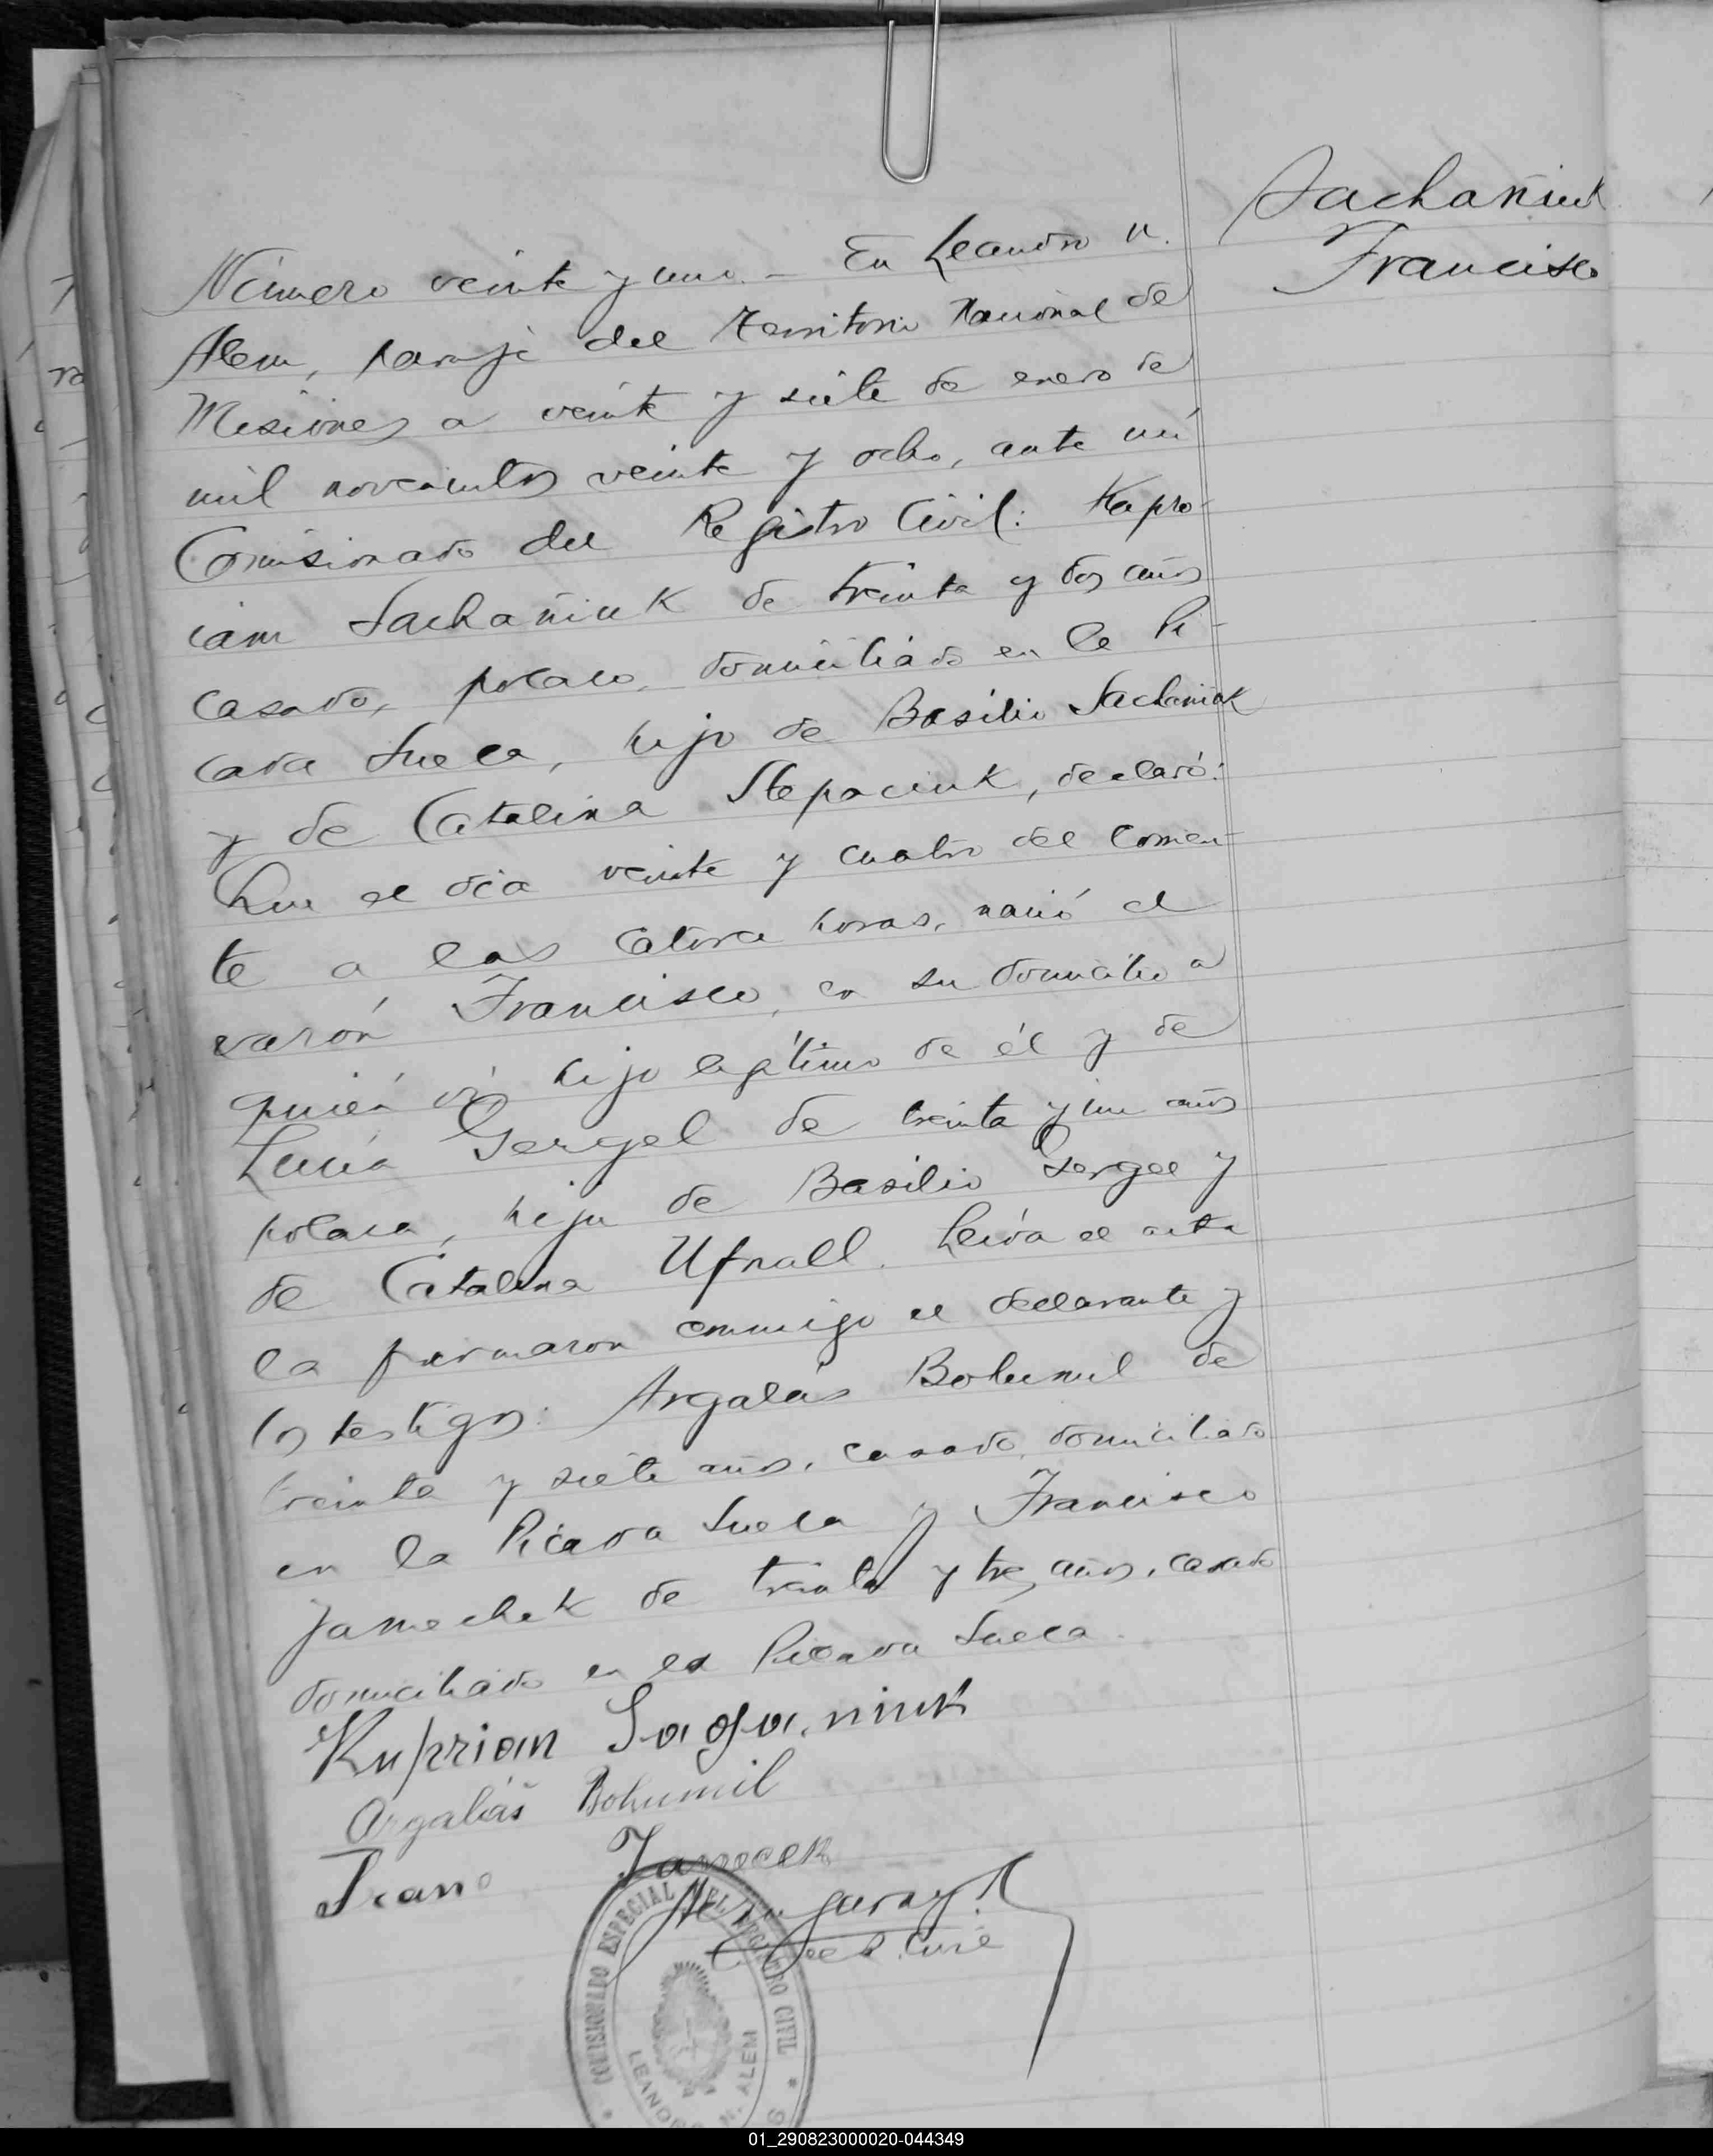 Sachañiuk
Francisco
Número veinte y uno. - En Leandro N.
Alem, paraje del Territorio Nacional de
Misiones a veinte y siete de enero de
mil novecientos veinte y ocho, ante mí
Comisionado del Registro Civil: Kapro-
cam Sachañiuk de treinta y dos años
casado, polaco, domiciliado en la Pi-
cada Sueca, hijo de Basilio Sachañiuk
y de Catalina Stepaciuk, declaró:
Que el día veinte y cuatro del corrien-
te a las catorce horas, nació el
varón Francisco, en su domicilio a
quién vi, hijo legítimo de él y de
Lucía Gergel de treinta y un años
polaca, hija de Basilio Gergel y
de Catalina Ufnall. Leída el acta
la firmaron conmigo el declarante y
los testigos: Argalás Bohumil de
treinta y siete años, casado, domiciliado
en la Picada Sueca y Francisco
Janechek de treinta y tres años, casado
domiciliado en la Picada Sueca.
Kuprian Saganiuk
Argaláš Bohumil
Frano Janecek
COMISIONADO ESPECIAL DEL REGISTRO CIVIL
LEANDRO N. ALEM
01_290823000020-044349